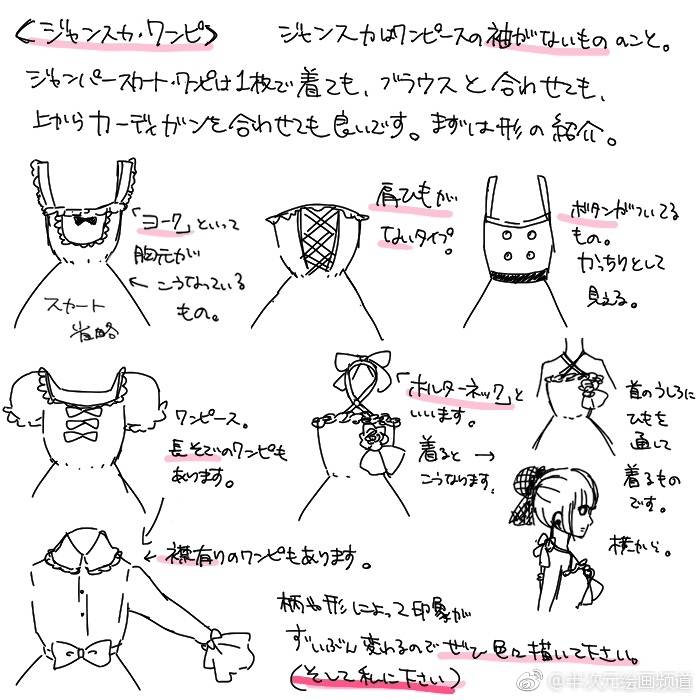 〈ジャンスカ・ワンピ〉
ジャンスカはワンピースの袖がないもののこと。
ジャンパースカート・ワンピは1枚で着ても、ブラウスと合わせても、
上からカーディガンを合わせても良いです。まずは形の紹介。
「ヨーク」といって
胸元が
← こうなっている
もの。
スカート
省略
肩ひもが
ないタイプ。
ボタンがついてる
もの。
かっちりとして
見える。
ワンピース。
長そでのワンピも
あります。
「ホルターネック」と
いいます。
着ると →
こうなります。
首のうしろに
ひもを
通して
着るもの
です。
横から。
← 襟有りのワンピもあります。
柄や形によって印象が
ずいぶん変わるのでぜひ色々描いて下さい。
(そして私に下さい)
@半次元绘画频道